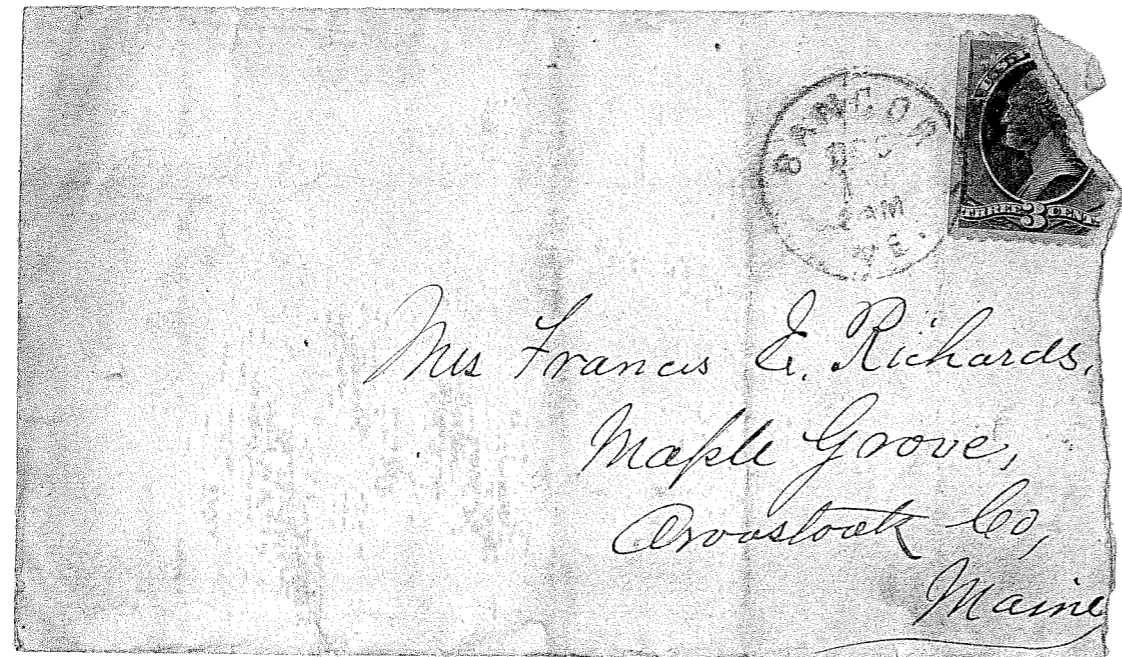 BANGOR
DEC
1
AM
ME.
THREE 3 CENT
Mrs Francis E. Richards,
Maple Grove,
Aroostook Co,
Maine